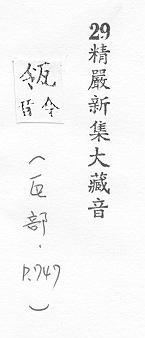 29精嚴新集大藏音
瓴
音令
(瓦部.P.747)